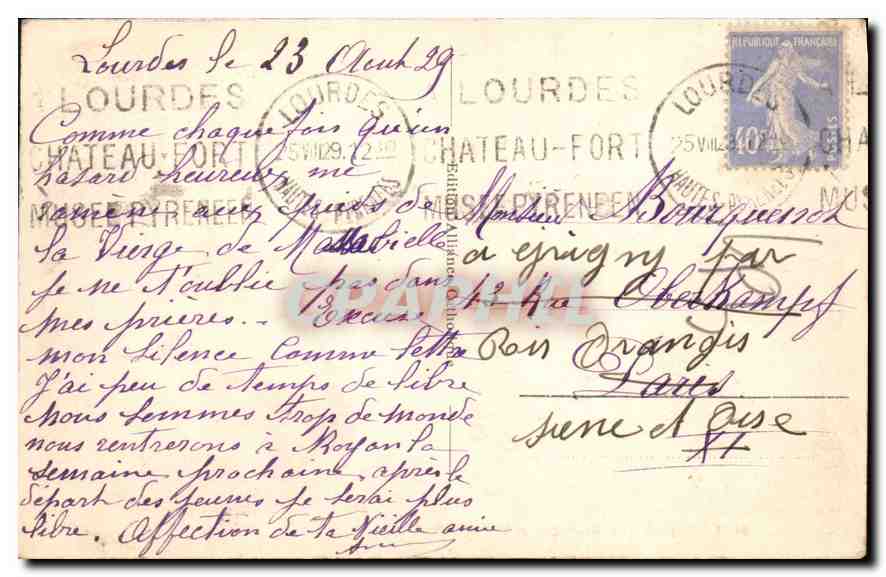 Lourdes le 23 Aout 29
Comme chaque fois qu'un
hasard heureux me
ramène aux pieds de
la Vierge de Massabielle
je ne t'oublie pas dans
mes prières.. Excuse
mon silence comme lettre
J'ai peu de temps de libre
nous sommes trop de monde
nous rentrerons à Royan la
semaine prochaine, après le
départ des jeunes je serai plus
libre. Affection de ta Vieille amie
LOURDES
CHATEAU-FORT
MUSEE PYRENEEN
LOURDES
25 VIII 29. 12
HAUTES-PYRENEES
LOURDES
CHATEAU-FORT
MUSEE PYRENEEN
LOURDES
25 VIII 29 12
HAUTES-PYRENEES
REPUBLIQUE FRANÇAISE
40c
POSTES
Monsieur Bourquenot
a grigny par
43 Rue Oberkampf
Ris Orangis
Paris
seine et Oise
XI
CPAPHIL